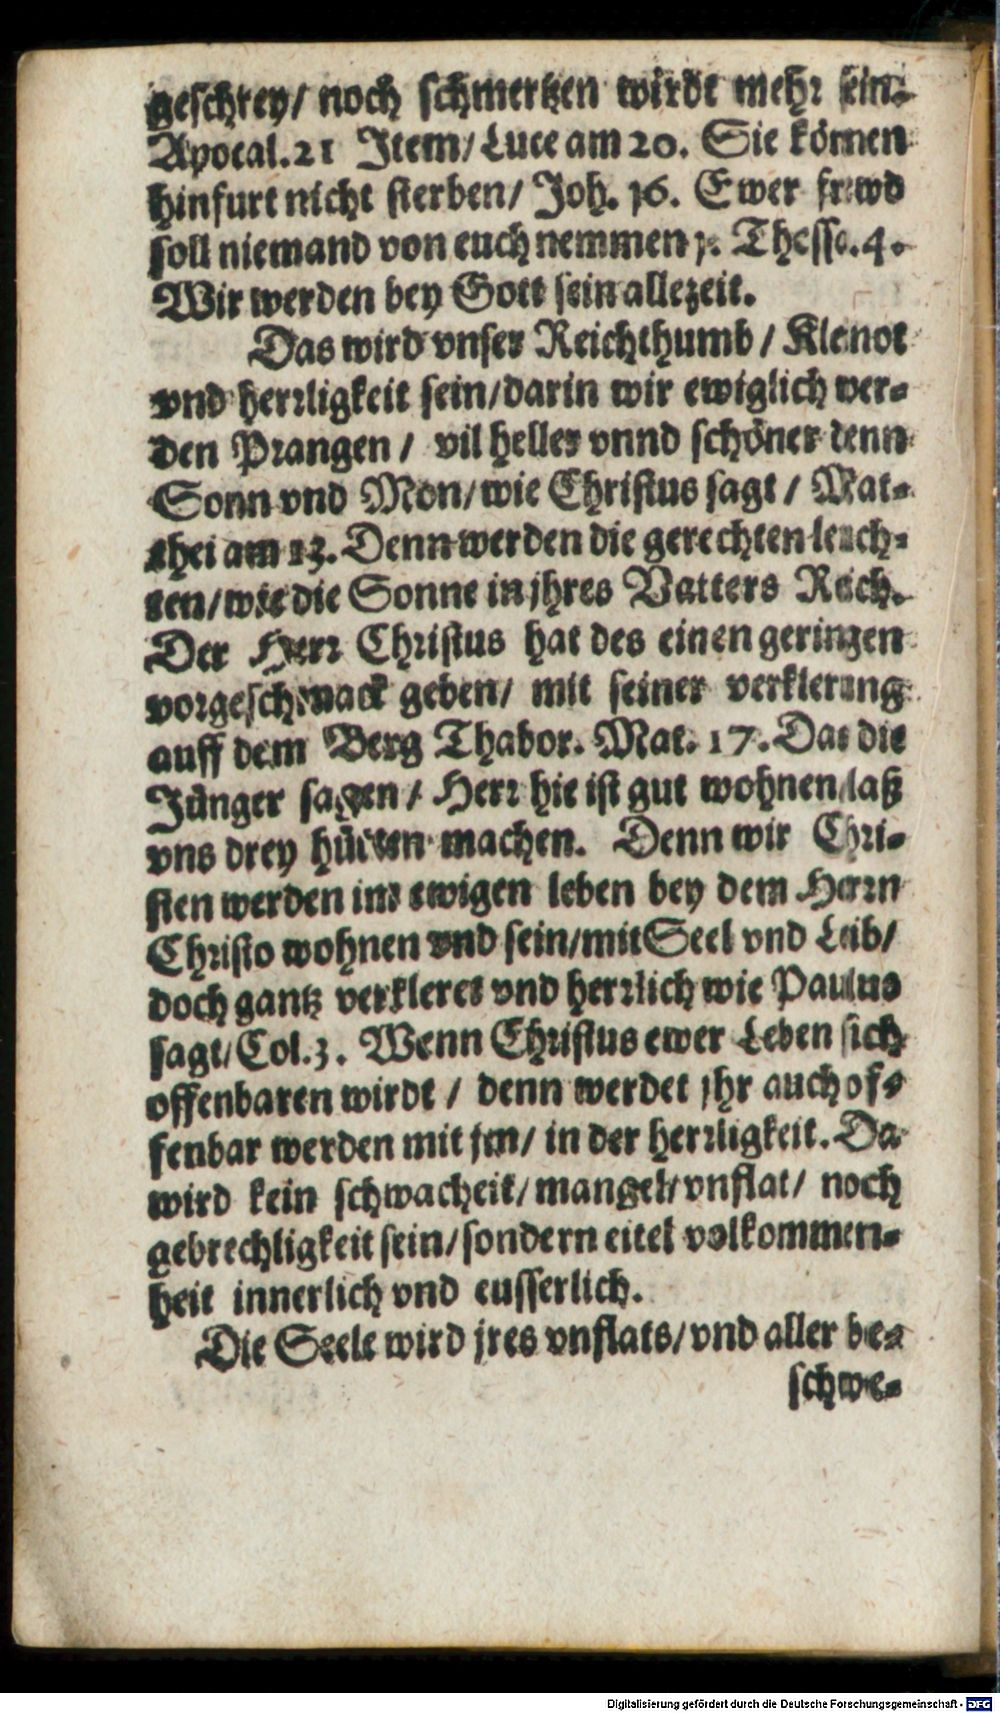 geschrey/ noch schmertzen wirdt mehr sein.
Apocal. 21 Item/ Luce am 20. Sie können
hinfurt nicht sterben/ Joh. 16. Ewer frewd
soll niemand von euch nemmen 1. Thesse. 4.
Wir werden bey Gott sein allezeit.
Das wird vnser Reichthumb / Klenot
vnd herrligkeit sein/ darin wir ewiglich wer-
den Prangen / vil heller vnnd schöner denn
Sonn vnd Mon/ wie Christus sagt / Mat-
thei am 13. Denn werden die gerechten leuch-
ten/ wie die Sonne in jhres Vatters Reich.
Der Herr Christus hat des einen geringen
vorgeschmack geben/ mit seiner verklerung
auff dem Berg Thabor. Mat. 17. Das die
Jünger sagen / Herr hie ist gut wohnen laß
vns drey hütten machen. Denn wir Chri-
sten werden im ewigen leben bey dem Herrn
Christo wohnen vnd sein/ mit Seel vnd Leib/
doch gantz verkleret vnd herrlich wie Paulus
sagt/ Col. 3. Wenn Christus ewer Leben sich
offenbaren wirdt / denn werdet jhr auch of-
fenbar werden mit jm/ in der herrligkeit. Da
wird kein schwacheit/ mangel/ vnflat/ noch
gebrechligkeit sein/ sondern eitel volkommen-
heit innerlich vnd eusserlich.
Die Seele wird jres vnflats/ vnd aller be-
schwe-
Digitalisierung gefördert durch die Deutsche Forschungsgemeinschaft - DFG